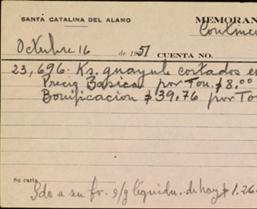 SANTA CATALINA DEL ALAMO MEMORAN
Octubre 16 de 1951 CUENTA NO.
23,696. Ks. guayule cortados e
Precio Basico por Ton. $8.00
Bonificacion $39.76 por To
Su carta
Sdo a su fv. s/g liquidn. de hoy $1.26